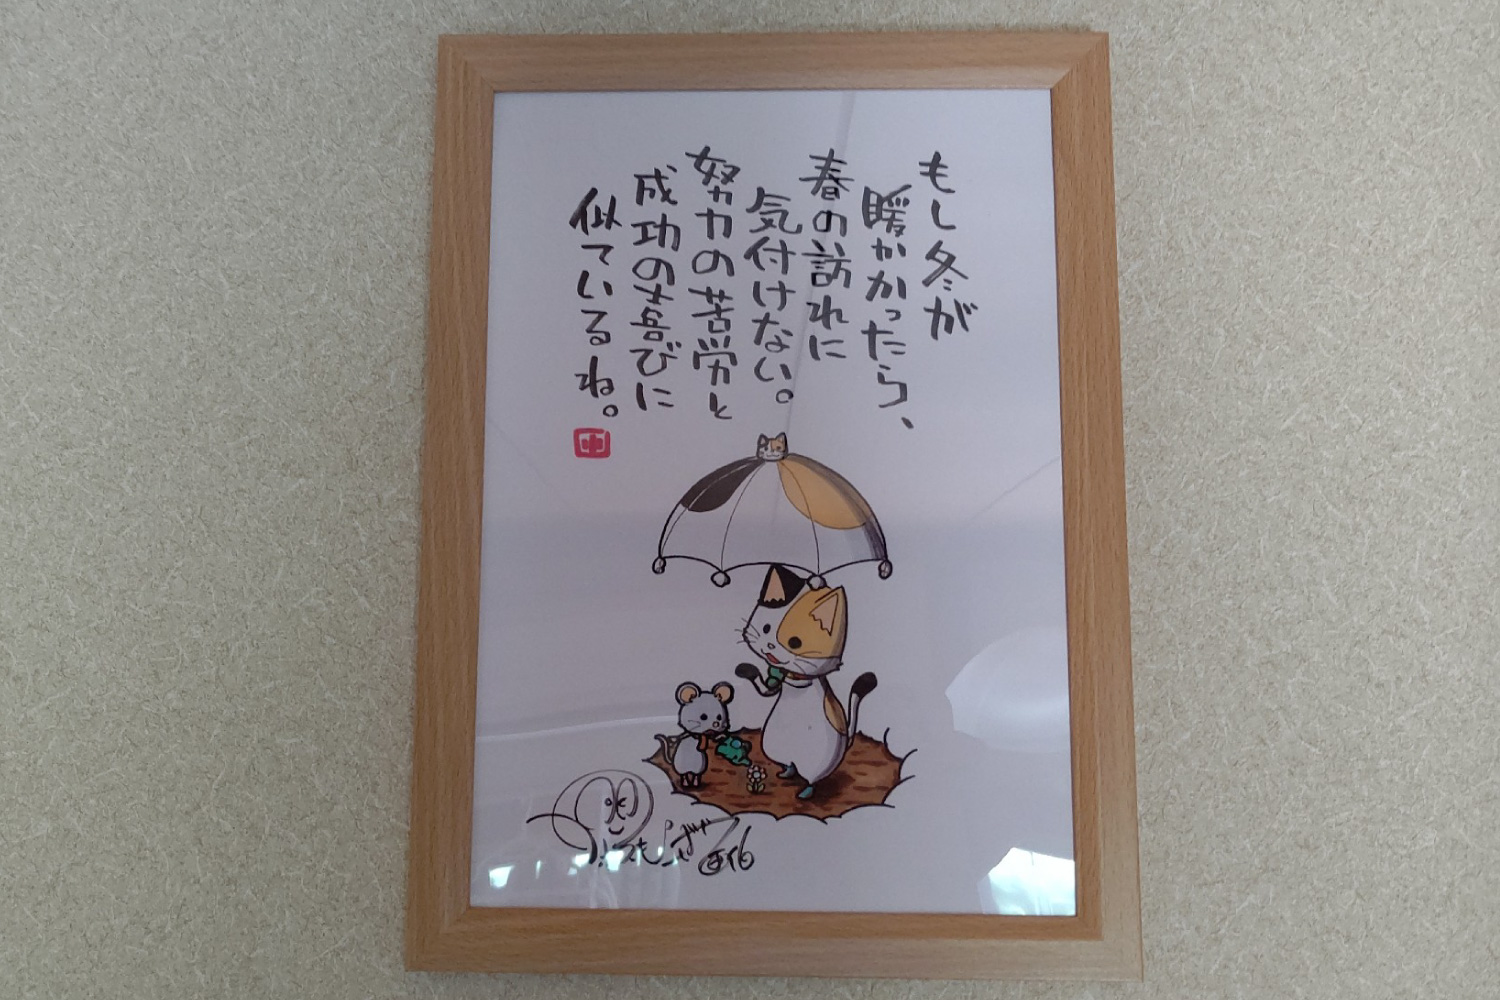 もし冬が
暖かかったら、
春の訪れに
気付けない。
努力の苦労と
成功の喜びに
似ているね。